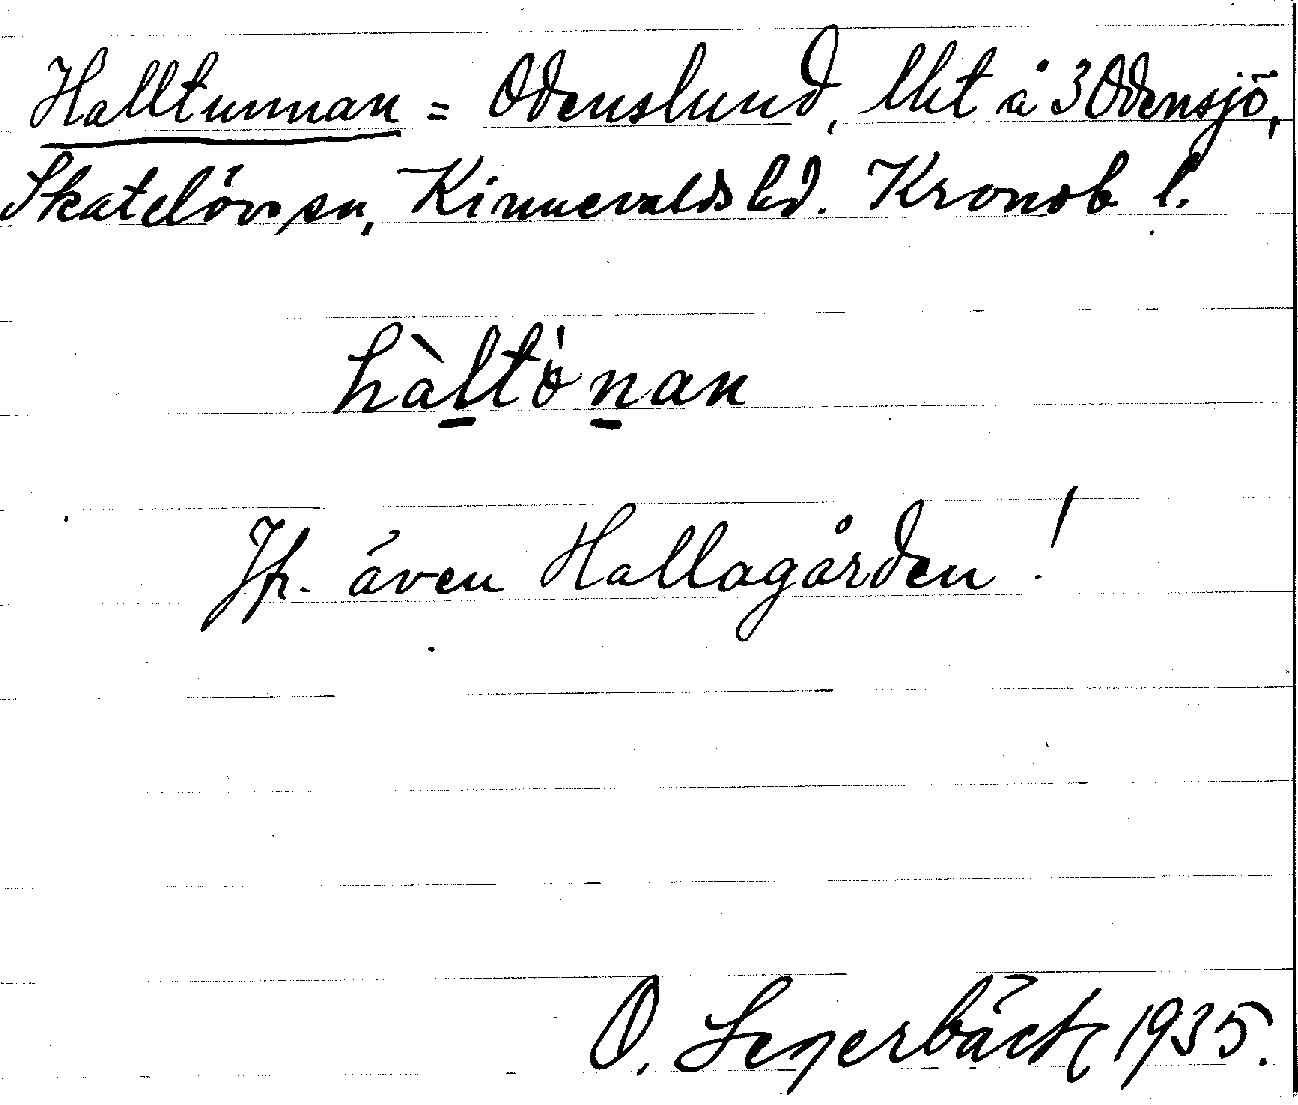 Halltunnan = Odenslund, lht å 3 Odensjö,
Skatelövs sn, Kinnevalds hd. Kronob l.
hàltònan
Jfr. även Hallagården!
O. Segerbäck 1935.